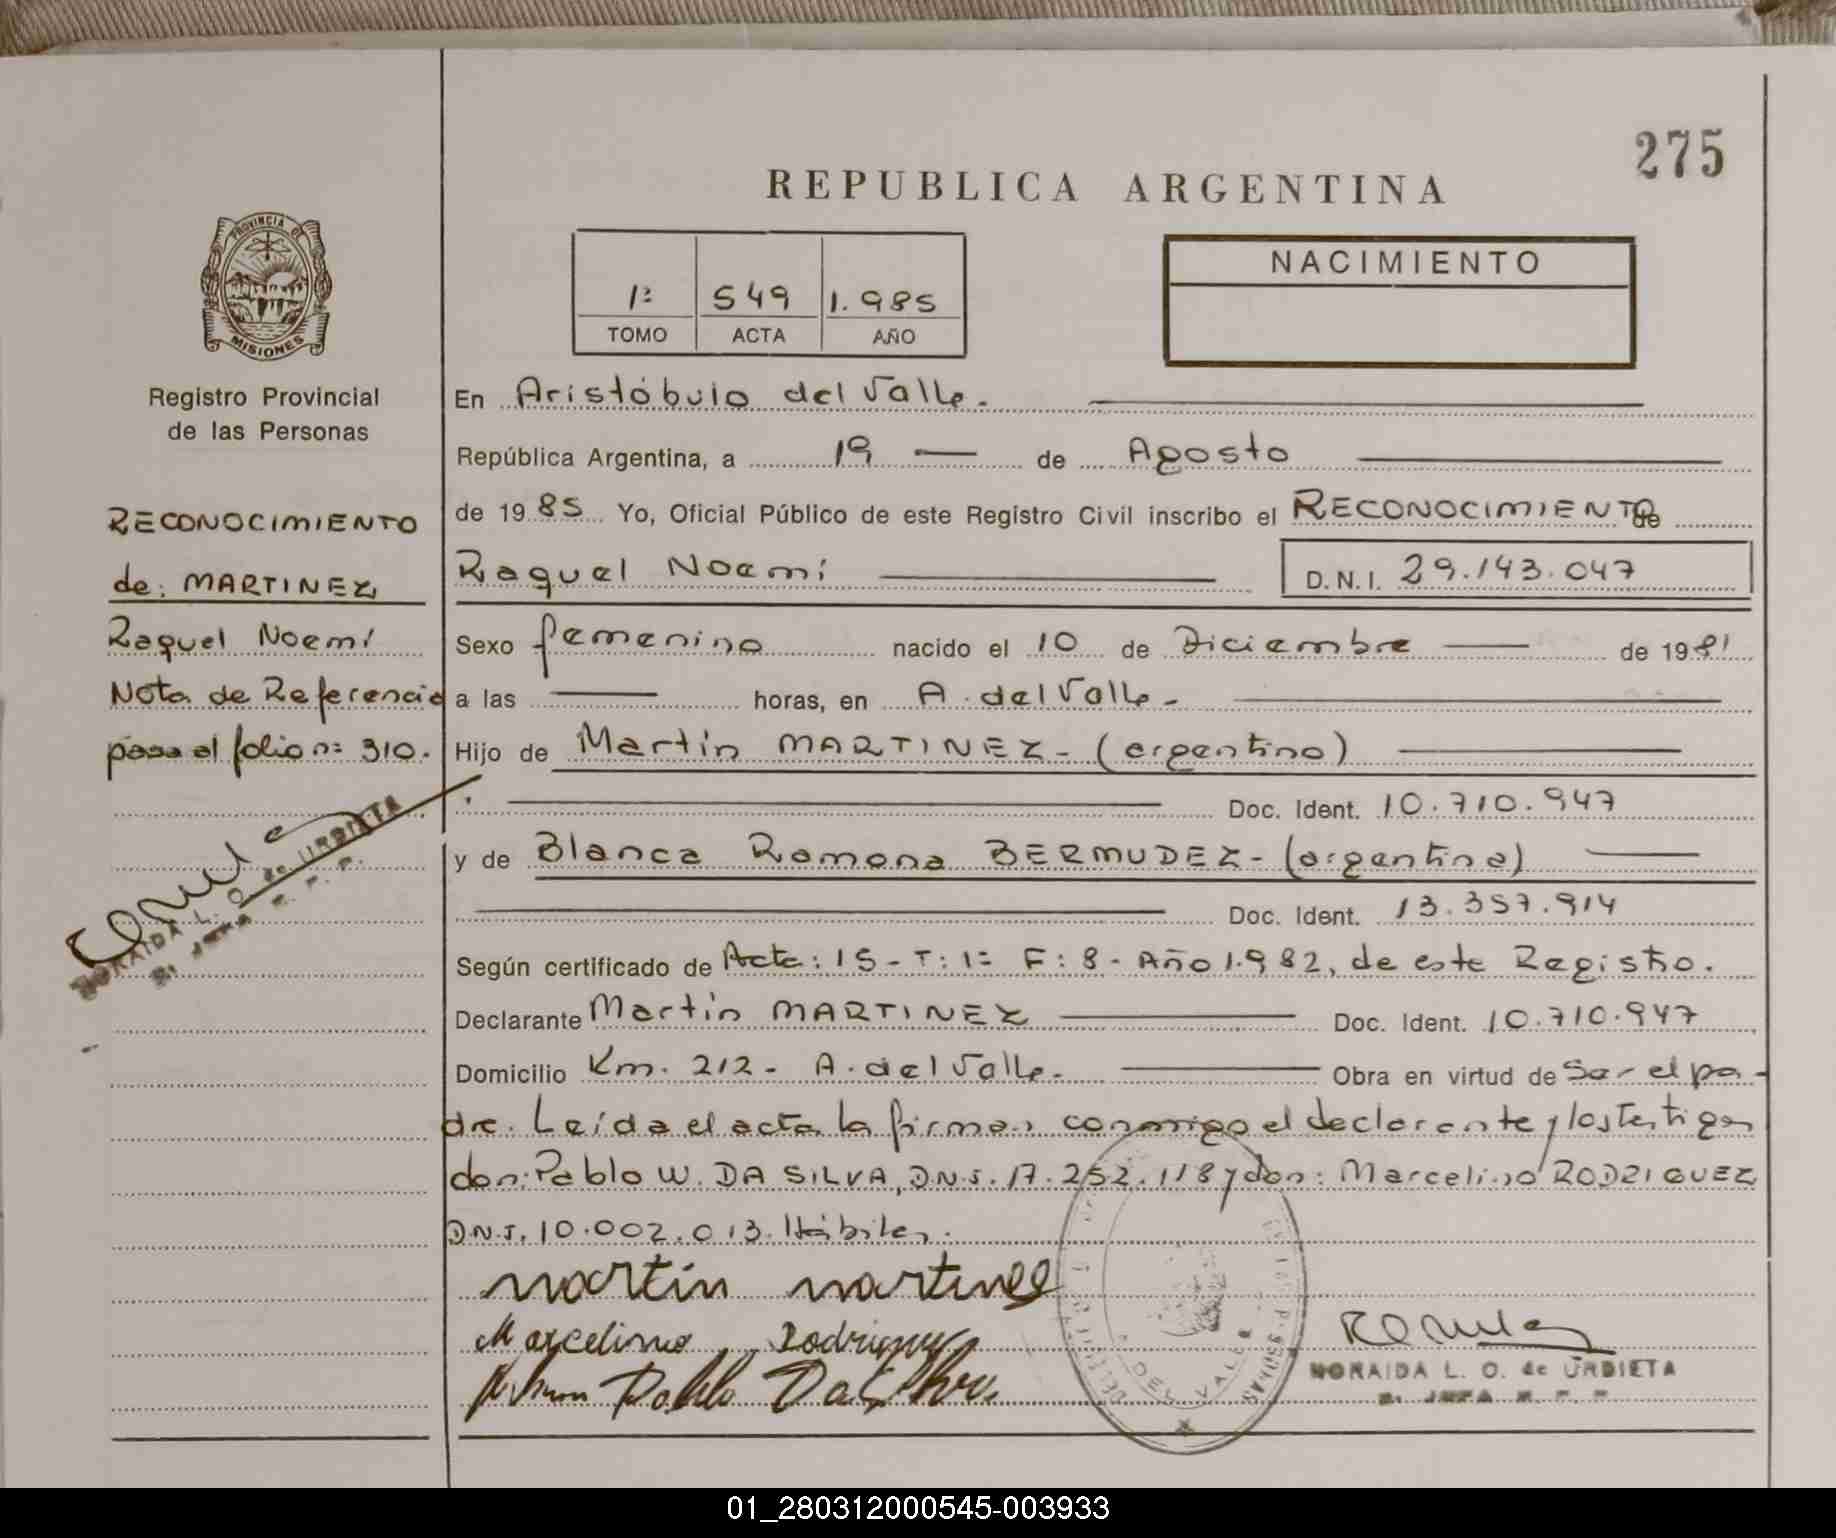 275
REPUBLICA ARGENTINA
PROVINCIA DE
MISIONES
Registro Provincial
de las Personas
RECONOCIMIENTO
de: MARTINEZ,
Raquel Noemí
Nota de Referencia
pasa al folio nº 310.
NORAIDA L. O. de URDIETA
1ª 549 1.985
TOMO ACTA AÑO
NACIMIENTO
En Aristóbulo del Valle.
República Argentina, a 19 de Agosto
de 1985 Yo, Oficial Público de este Registro Civil inscribo el RECONOCIMIENTO de
Raquel Noemí D.N.I. 29.143.047
Sexo femenino nacido el 10 de Diciembre de 1981
a las horas, en A. del Valle.
Hijo de Martín MARTINEZ - (argentino)
Doc. Ident. 10.710.947
y de Blanca Ramona BERMUDEZ - (argentina)
Doc. Ident. 13.357.914
Según certificado de Acta: 15 - T: 1º F: 8 - Año 1.982, de este Registro.
Declarante Martín MARTINEZ Doc. Ident. 10.710.947
Domicilio Km. 212 - A. del Valle. Obra en virtud de Ser el pa-
dre. Leída el acta la firman conmigo el declarante y los testigos
don: Pablo W. DA SILVA, D.N.I. 17.252.118 y don: Marcelino RODRIGUEZ
D.N.I. 10.002.013. Hábiles.
martín martinez
Marcelino Rodriguez
Pablo Da Silva
DEL VALLE
NORAIDA L. O. de URDIETA
01_280312000545-003933